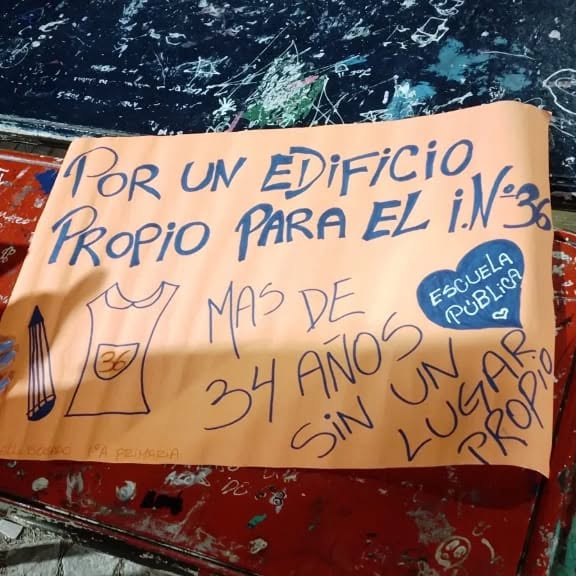 POR UN EDIFICIO
PROPIO PARA EL I.Nº36
ESCUELA
PÚBLICA
MAS DE
34 AÑOS
SIN UN
LUGAR
PROPIO
36
1ºA PRIMARIA